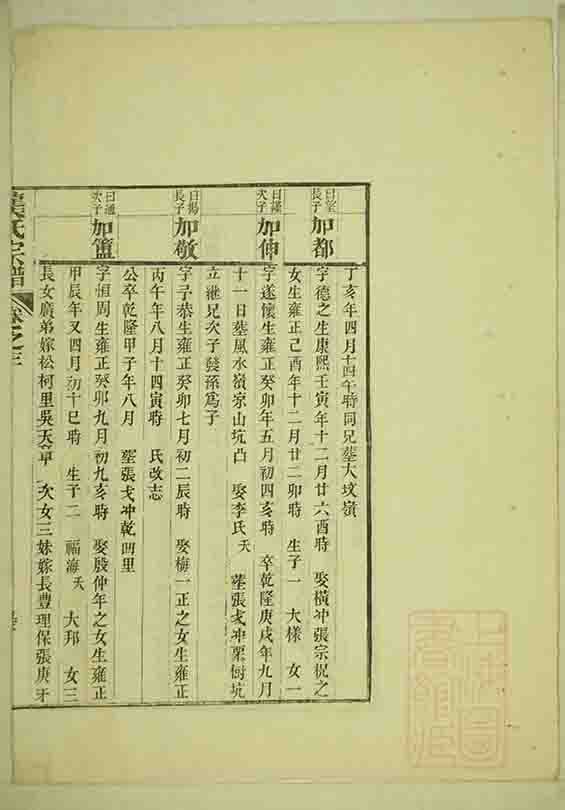 丁亥年四月十四午時同兄塟大坟嶺
曰望長子 加都 字德之生康熙壬寅年十二月廿六酉時 娶橫冲張宗祝之
女生雍正己酉年十二月廿二卯時 生子一 大樣 女一
曰謹次子 加伸 字遂懷生雍正癸卯年五月初四亥時 卒乾隆庚戌年九月
十一日塟風水嶺凉山坑凸 娶李氏夭 塟張戈冲栗樹坑
立継兄次子發孫爲子
曰揚長子 加敬 字子恭生雍正癸卯七月初二辰時 娶梅一正之女生雍正
丙午年八月十四寅時 氏改志
公卒乾隆甲子年八月 塟張戈冲乾凹里
曰通次子 加籃 字恒周生雍正癸卯九月初九亥時 娶殷仲年之女生雍正
甲辰年又四月初十巳時 生子二 福海夭 大邦 女三
長女廣弟嫁松柯里吳天卓 次女三妹嫁長豐理保張庚牙
氏宗譜 卷之三